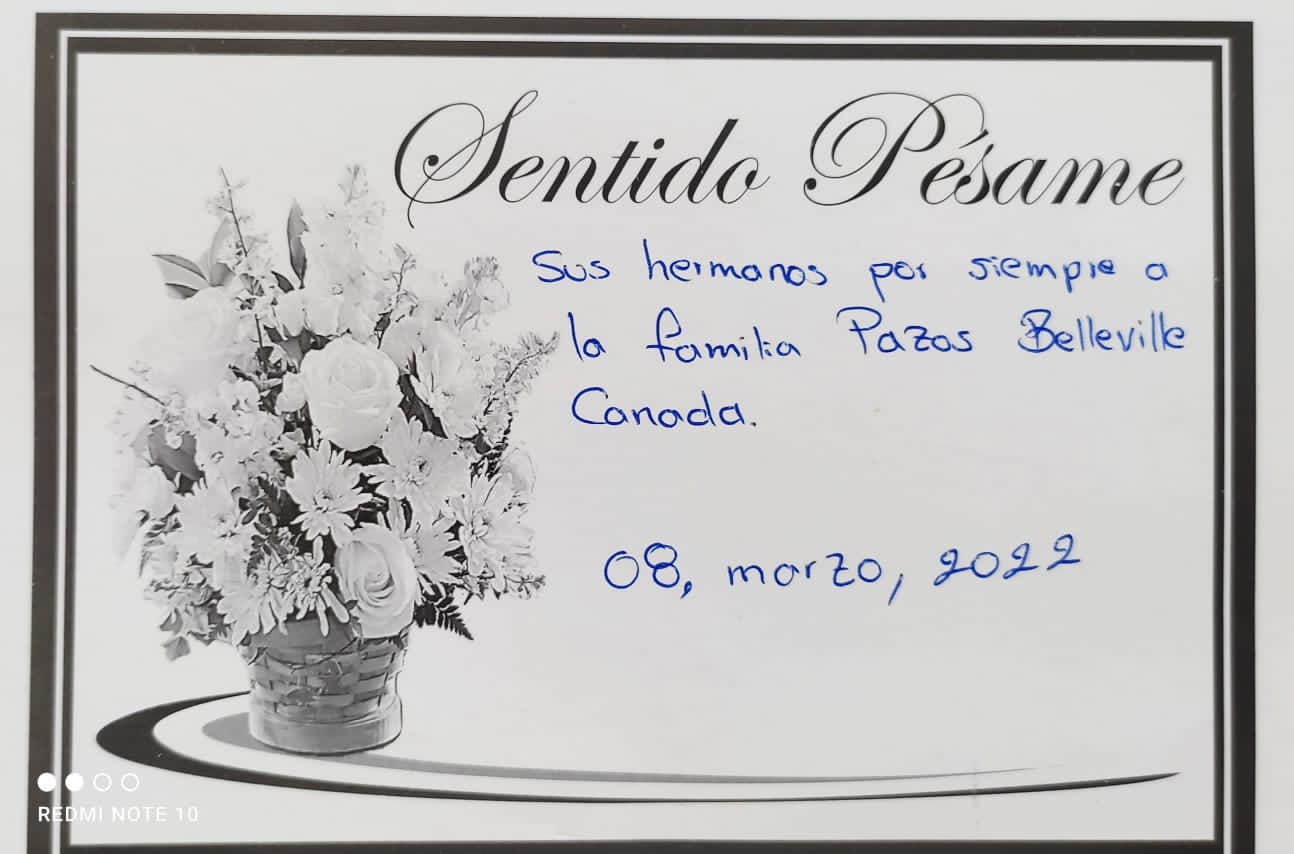 Sentido Pésame
Sus hermanos por siempre a
la familia Pazos Belleville
Canada.
08, marzo, 2022
REDMI NOTE 10